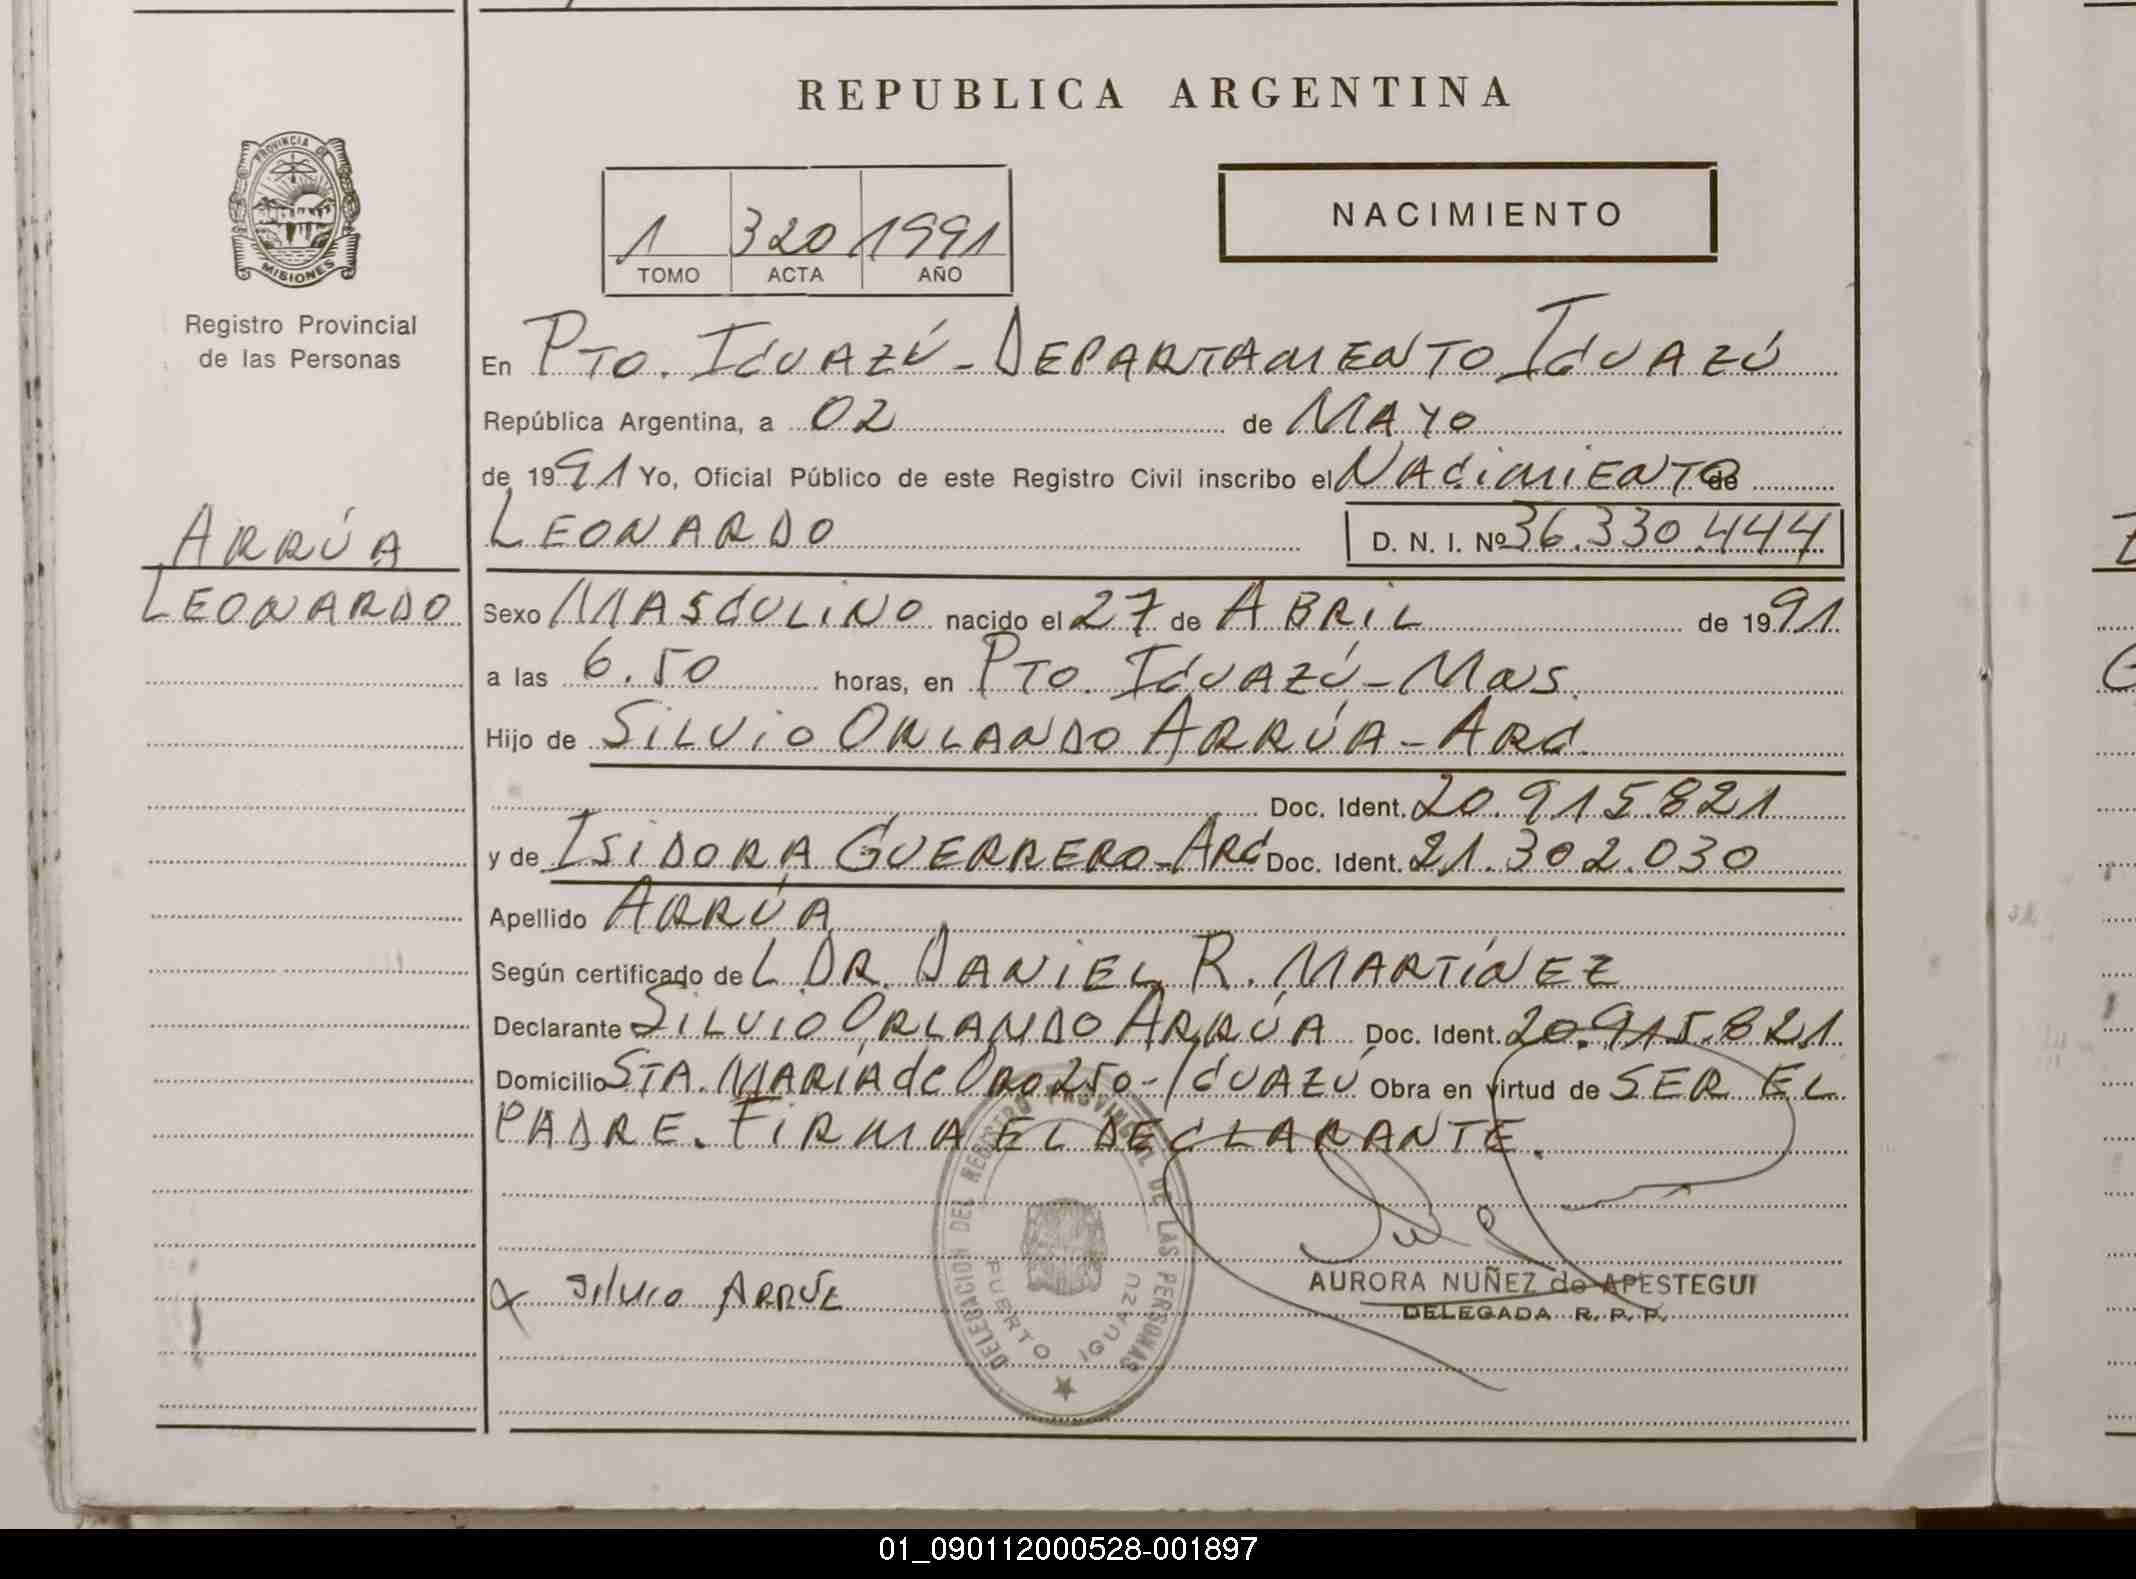 REPUBLICA ARGENTINA
PROVINCIA DE
MISIONES
Registro Provincial
de las Personas
1 320 1991
TOMO ACTA AÑO
NACIMIENTO
En PTO. IGUAZÚ - DEPARTAMENTO IGUAZÚ
República Argentina, a 02 de MAYO
de 1991 Yo, Oficial Público de este Registro Civil inscribo el NACIMIENTO de
ARRÚA
LEONARDO D. N. I. Nº 36.330.444
LEONARDO
Sexo MASCULINO nacido el 27 de ABRIL de 1991
a las 6.50 horas, en PTO. IGUAZÚ - Mnes.
Hijo de SILVIO ORLANDO ARRÚA - ARG.
Doc. Ident. 20.915.821
y de ISIDORA GUERRERO - ARG Doc. Ident. 21.302.030
Apellido ARRÚA
Según certificado de L DR. DANIEL R. MARTÍNEZ
Declarante SILVIO ORLANDO ARRÚA Doc. Ident. 20.915.821
Domicilio STA. MARÍA de ORO 250 - IGUAZÚ Obra en virtud de SER EL
PADRE. FIRMA EL DECLARANTE.
DELEGACION DEL REGISTRO PROVINCIAL DE LAS PERSONAS
PUERTO IGUAZU
Silvio ARRÚA
AURORA NUÑEZ de APESTEGUI
DELEGADA R. P. P.
01_090112000528-001897